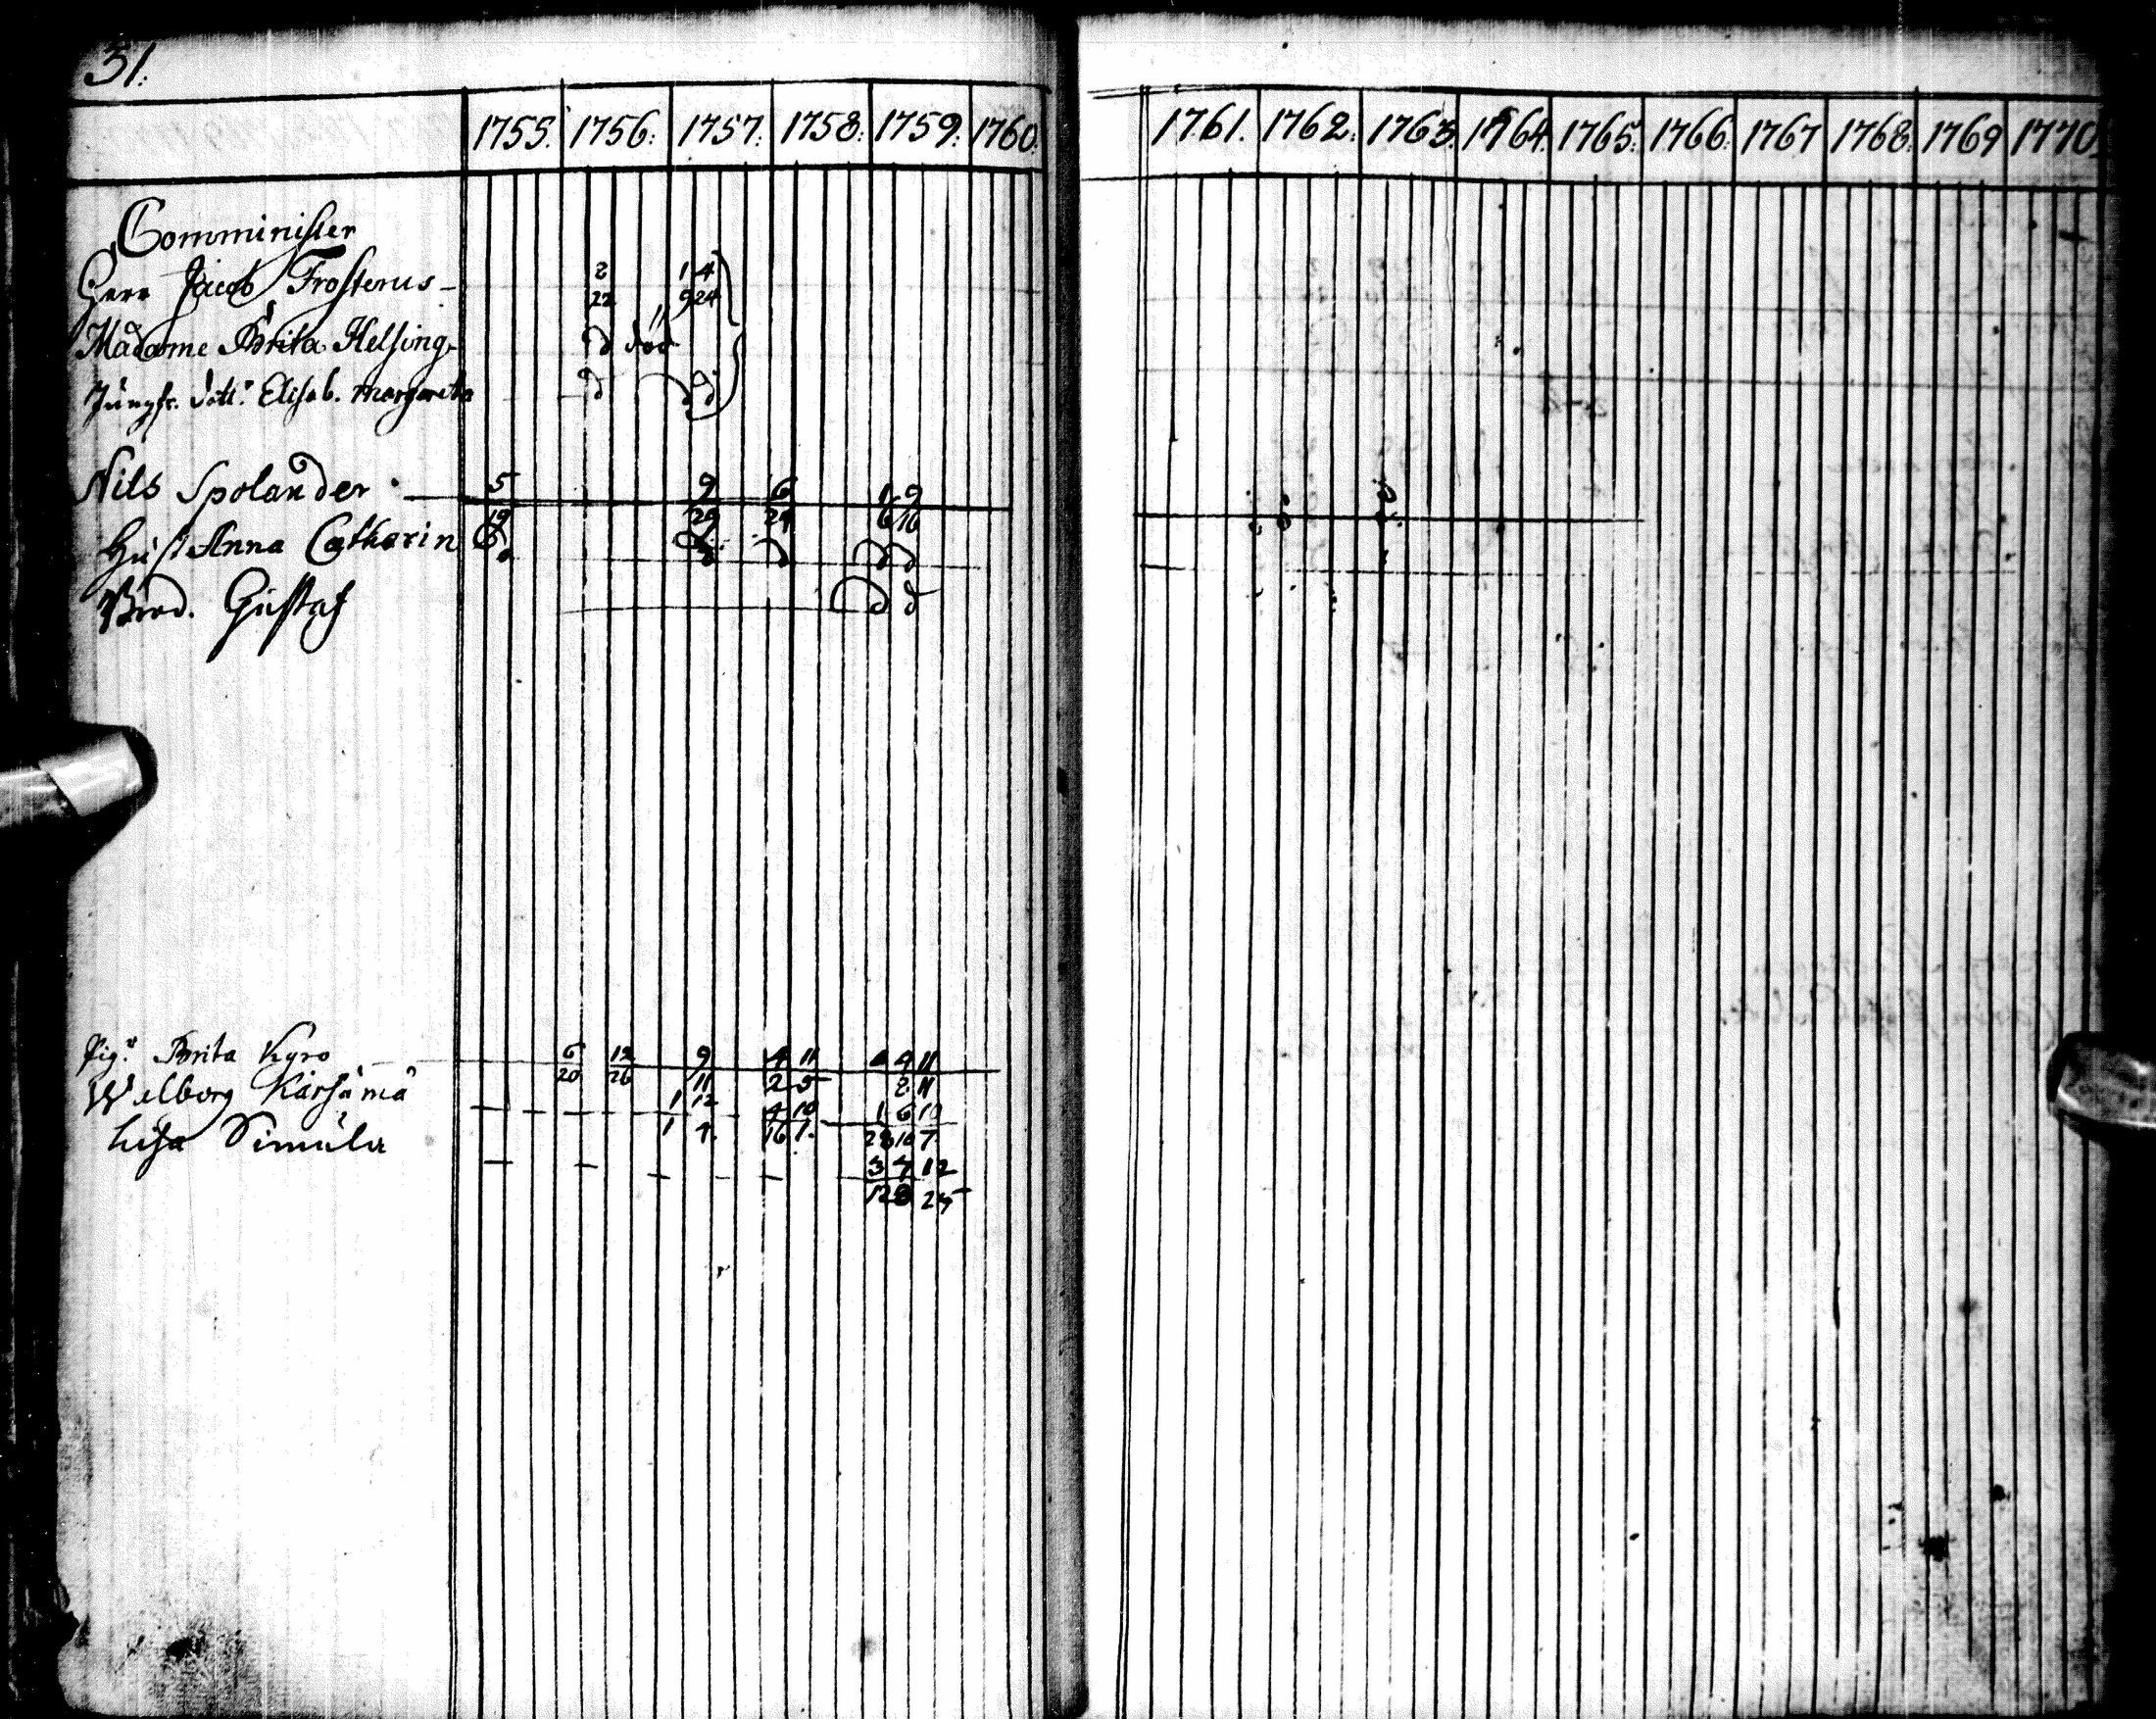 31.
1755. 1756. 1757. 1758. 1759. 1760. 1761. 1762. 1763. 1764. 1765. 1766. 1767 1768. 1769 1770.
Comminister
Herr Jacob Frosterus 2 1 4
22 9 24
Madame Brita Helsing. d död
Jungfr. Dott. Elisab. Margareta d d d
Nils Spolander 5 9 6 1 9
19 29 24 6 16
Hust. Anna Catharin d d d d d
Brod. Gustaf d d
Pig. Brita Kyro 6 12 9 4 11 4 11
20 26 11 2 5 8 11
Welborg Kärsämä 1 12 4 10 1 6 10
1 4 16 1. 28 10 7
Lisa Simula 3 7 12
12 8 25